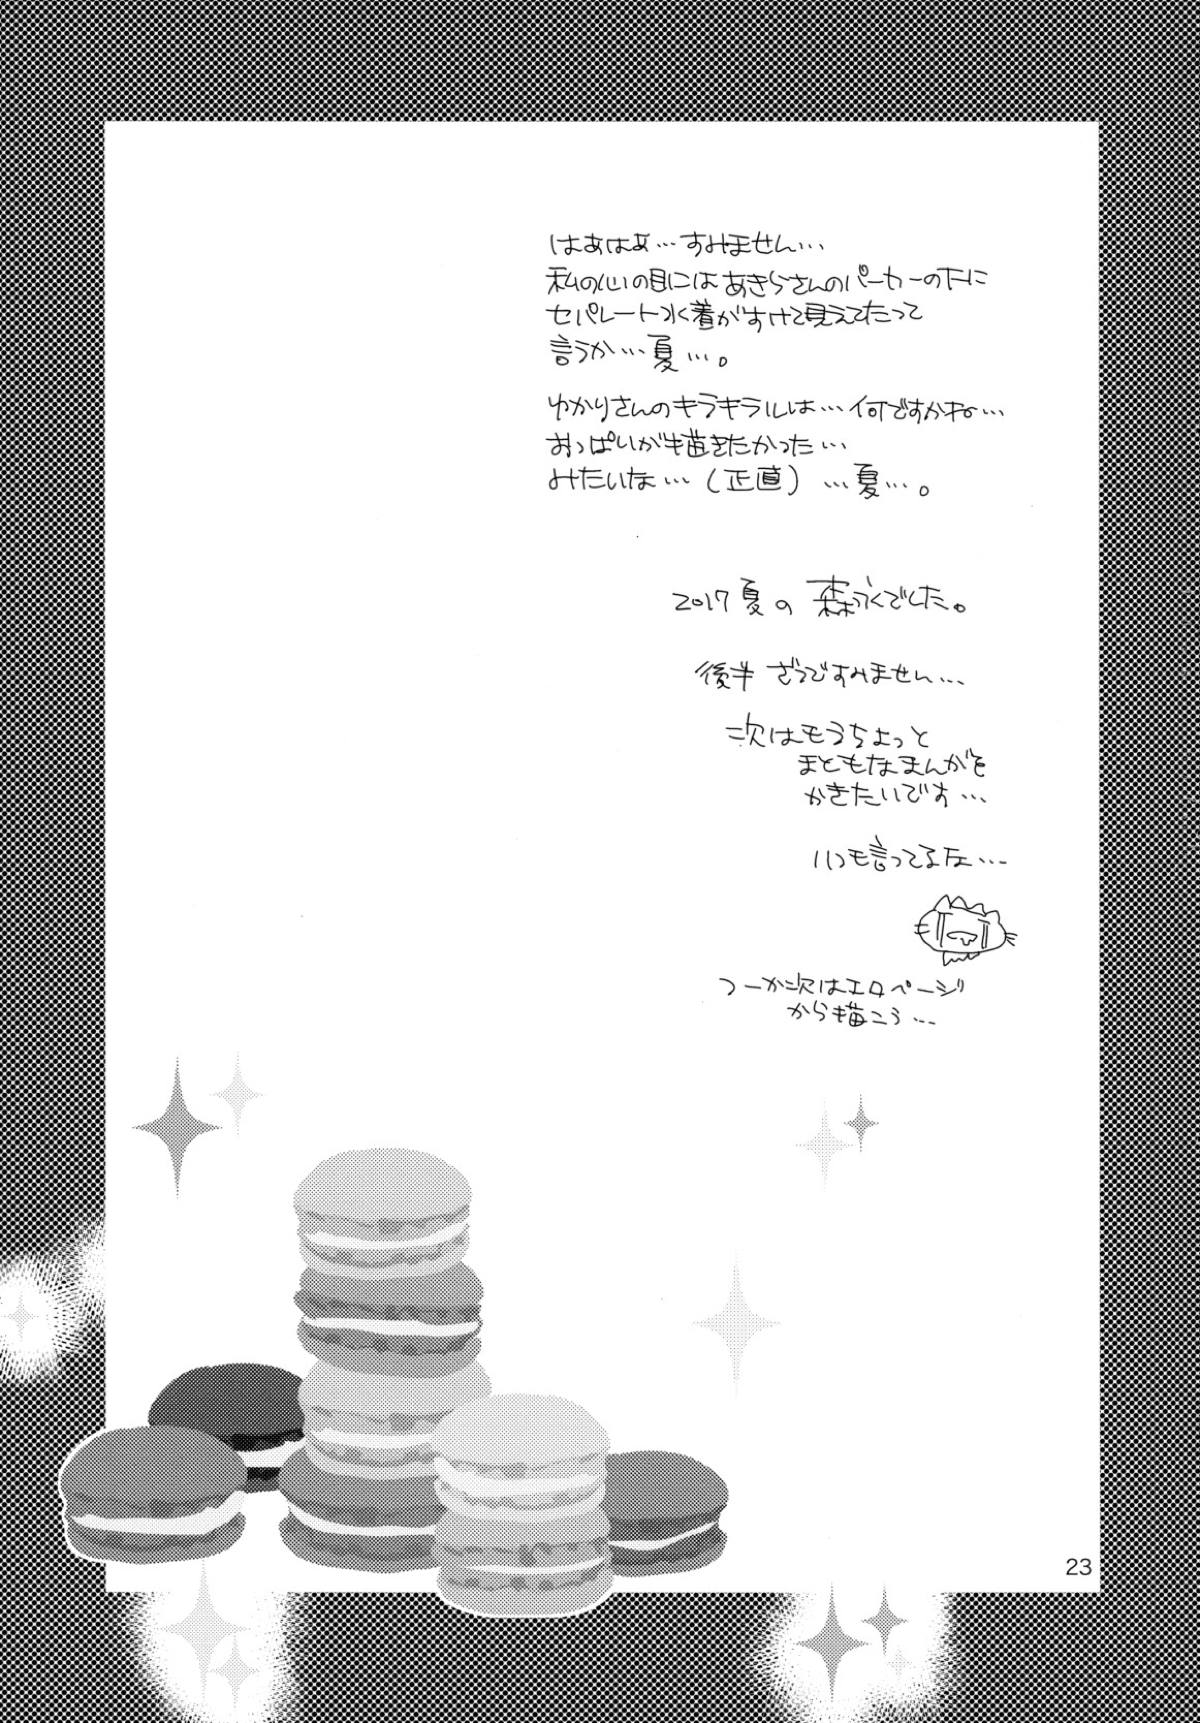 はあはぁ…すみません…
私の心の目にはあきらさんのパーカーの下に
セパレート水着がすけて見えてたって
言うか…夏…。
ゆかりさんのキラキラルは…何ですかね…
おっぱいが描きたかった…
みたいな…(正直)…夏…。
2017夏の 森ふくでした。
後半 ざつですみません…
次はもうちょっと
まともなまんがを
かきたいです…
いつも言ってるな…
つーか次はエロページ
から描こう…
23